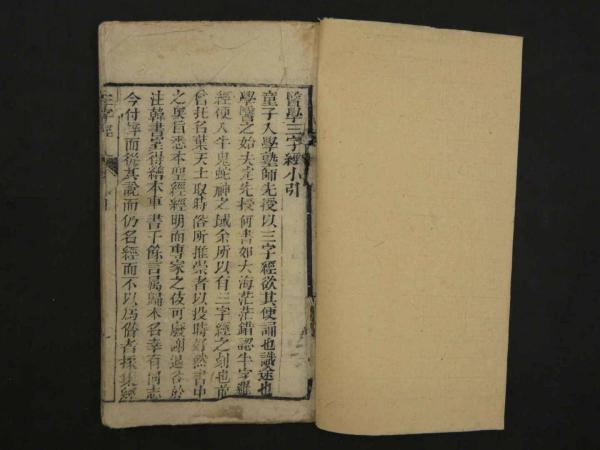 醫學三字經小引
童子入學塾師先授以三字經欲其便誦也識途也
學醫之始未定先授何書如大海茫茫錯認半字羅
經便入牛鬼蛇神之域余所以有三字經之刻也前
曾托名葉天士取時俗所推崇者以投時好然書中
之奧旨悉本聖經經明而專家之伎可廢謝退谷於
注韓書室得繪本車書千餘言屬歸本名幸有同志
今付梓而從其說而仍名經而不以為俗者採集經
三字經